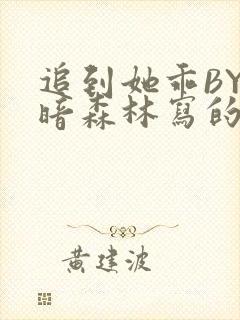 追到她乖BY
暗森林寫的
黃建波